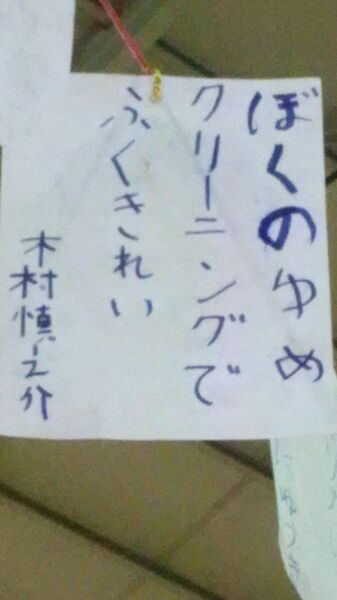 ぼくのゆめ
クリーニングで
ふくきれい
木村慎之介